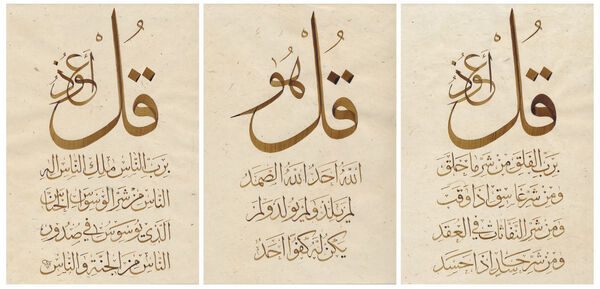 قل أعوذ
برب الفلق من شر ما خلق
ومن شر غاسق اذا وقب
ومن شر النفاثات في العقد
ومن شر حاسد اذا حسد
قل هو
الله احد الله الصمد
لم يلد ولم يولد ولم
يكن له كفوا احد
قل أعوذ
برب الناس ملك الناس اله
الناس من شر الوسواس الخناس
الذي يوسوس في صدور
الناس من الجنة والناس